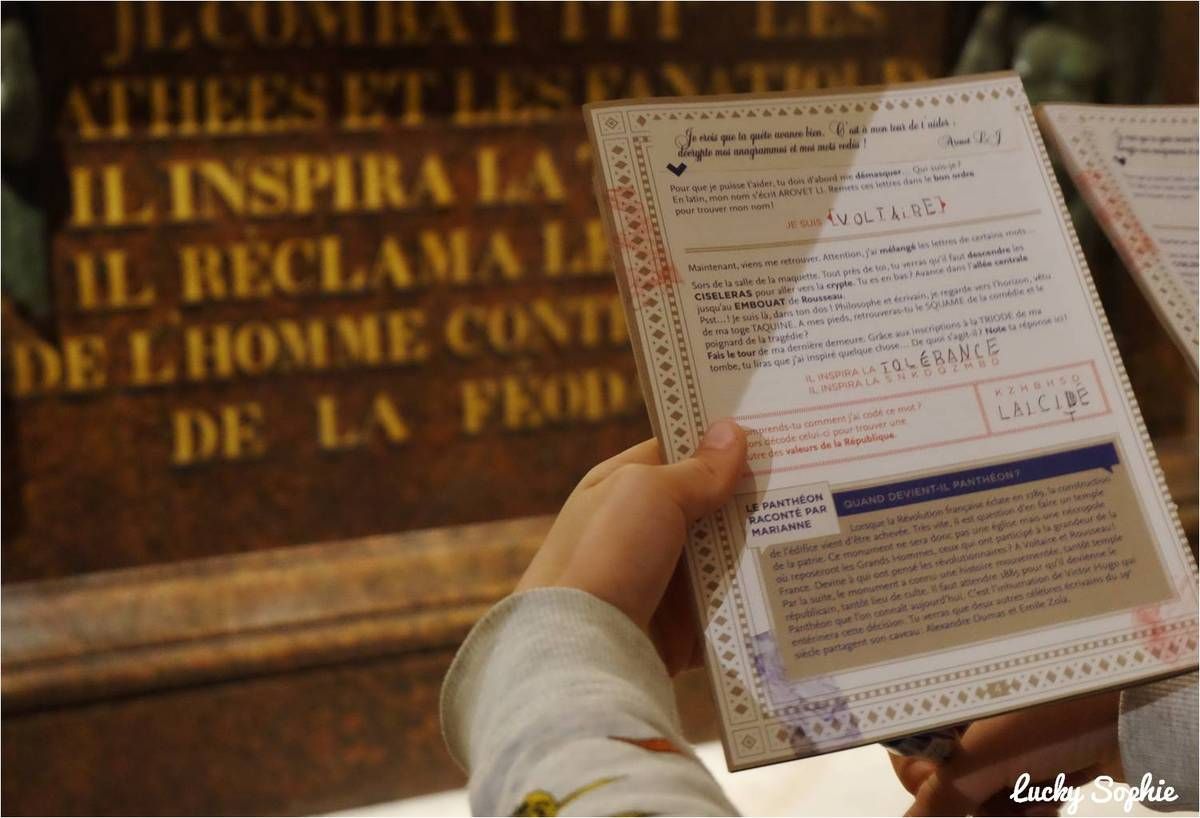 IL COMBATTIT LES
ATHEES ET LES FANATIQUES
IL INSPIRA LA
IL RECLAMA LE
DE L'HOMME CONTRE
DE LA FEOD
Je crois que ta quête avance bien. C'est à mon tour de t'aider :
décrypte mes anagrammes et mes mots codés !
Arovet L. I
Pour que je puisse t'aider, tu dois d'abord me démasquer... Qui suis-je ?
En latin, mon nom s'écrit AROVET LI. Remets ces lettres dans le bon ordre
pour trouver mon nom !
JE SUIS VOLTAIRE
Maintenant, viens me retrouver. Attention, j'ai mélangé les lettres de certains mots...
Sors de la salle de la maquette. Tout près de toi, tu verras qu'il faut descendre les
CISELERAS pour aller vers la crypte. Tu es en bas ? Avance dans l'allée centrale
jusqu'au EMBOUAT de Rousseau.
Psst...! Je suis là, dans ton dos ! Philosophe et écrivain, je regarde vers l'horizon, vêtu
de ma toge TAQUINE. A mes pieds, retrouveras-tu le SQUAME de la comédie et le
poignard de la tragédie ?
Fais le tour de ma dernière demeure. Grâce aux inscriptions à la TRIODE de ma
tombe, tu liras que j'ai inspiré quelque chose... De quoi s'agit-il ? Note ta réponse ici !
IL INSPIRA LA TOLÉRANCE
IL INSPIRA LA S N K D Q Z M B D
omprends-tu comment j'ai codé ce mot ?
ors décode celui-ci pour trouver une
utre des valeurs de la République.
K Z H B H S D
LAICIDE
T
LE PANTHÉON
RACONTÉ PAR
MARIANNE
QUAND DEVIENT-IL PANTHÉON ?
Lorsque la Révolution française éclate en 1789, la construction
de l'édifice vient d'être achevée. Très vite, il est question d'en faire un temple
de la patrie. Ce monument ne sera donc pas une église mais une nécropole
où reposeront les Grands Hommes, ceux qui ont participé à la grandeur de la
France. Devine à qui ont pensé les révolutionnaires ? A Voltaire et Rousseau !
Par la suite, le monument a connu une histoire mouvementée, tantôt temple
républicain, tantôt lieu de culte. Il faut attendre 1885 pour qu'il devienne le
Panthéon que l'on connaît aujourd'hui. C'est l'inhumation de Victor Hugo qui
entérinera cette décision. Tu verras que deux autres célèbres écrivains du 19e
siècle partagent son caveau : Alexandre Dumas et Emile Zola.
Lucky Sophie